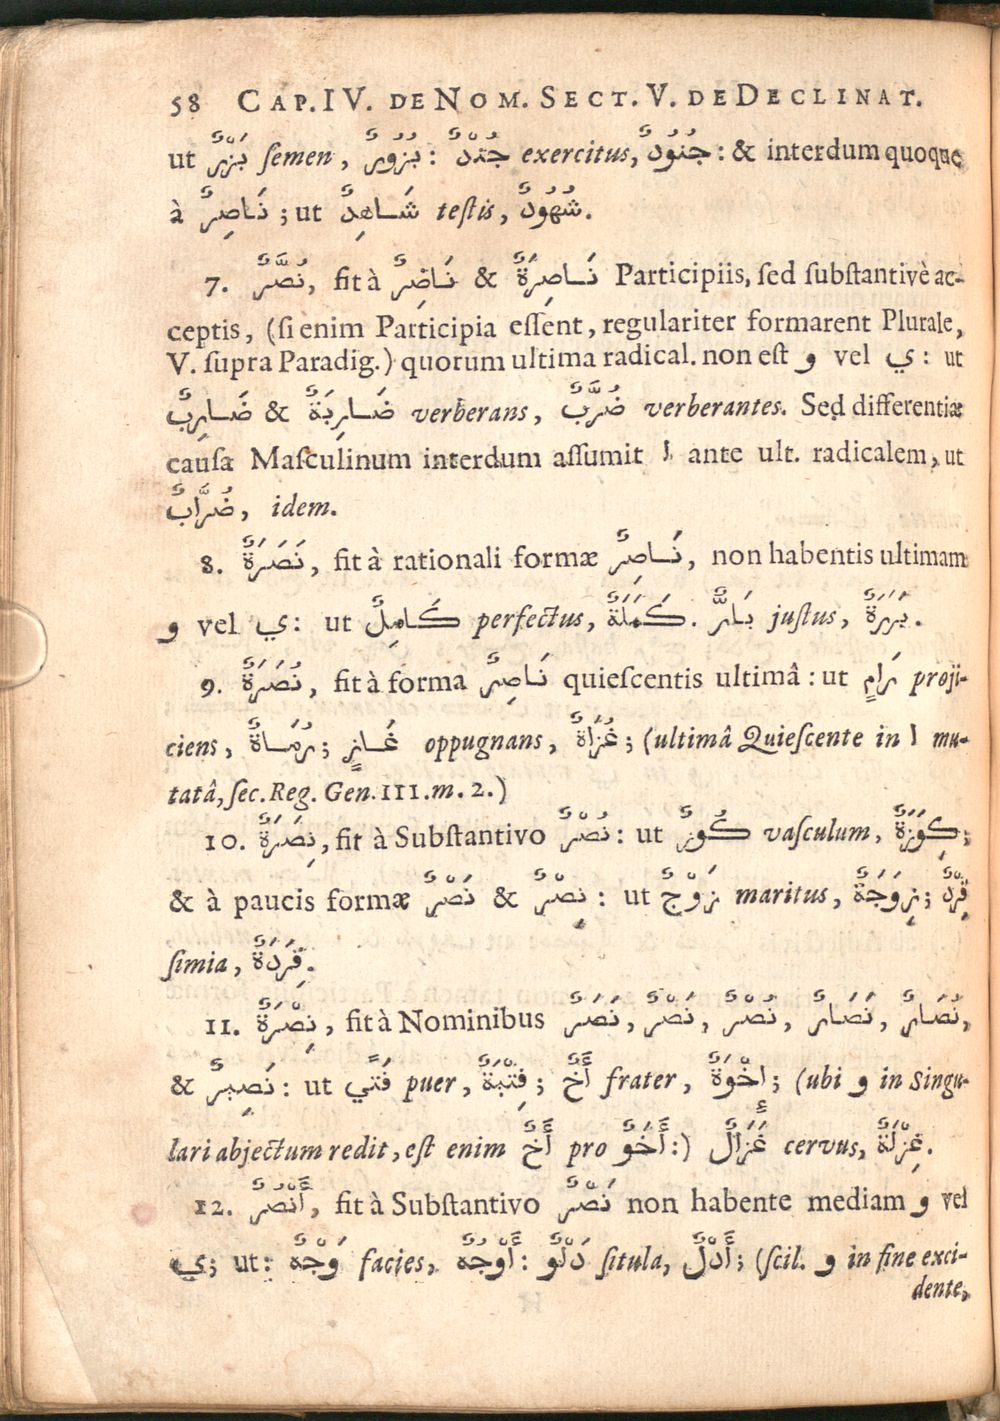 58 CAP. IV. DE NOM. SECT. V. DE DECLINAT.
ut بَزْرٌ ſemen, بُزُورٌ : جُنْدٌ exercitus, جُنُودٌ : & interdum quoque
à نَاصِرٌ ; ut شَاهِدٌ teſtis, شُهُودٌ.
7. نُصَّرٌ, fit à نَاصِرٌ & نَاصِرَةٌ Participiis, ſed ſubſtantivè ac-
ceptis, (ſi enim Participia eſſent, regulariter formarent Plurale,
V. ſupra Paradig.) quorum ultima radical. non eſt و vel ي : ut
ضَارِبٌ & ضَارِبَةٌ verberans, ضُرَّبٌ verberantes. Sed differentiæ
cauſa Maſculinum interdum aſſumit ا ante ult. radicalem, ut
ضُرَّابٌ, idem.
8. نَصَرَةٌ, fit à rationali formæ نَاصِرٌ, non habentis ultimam
و vel ي : ut كَامِلٌ perfectus, كَمَلَةٌ. بَارٌّ juſtus, بَرَرَةٌ.
9. نُصَرَةٌ, fit à forma نَاصِرٌ quieſcentis ultimâ : ut رَامٍ proji-
ciens, رُمَاةٌ ; غَازٍ oppugnans, غُزَاةٌ ; (ultimâ Quieſcente in ا mu-
tatâ, ſec. Reg. Gen. III. m. 2.)
10. نِصَرَةٌ, fit à Subſtantivo نُصْرٌ : ut كُوزٌ vaſculum, كِوَزَةٌ ;
& à paucis formæ نَصْرٌ & نِصْرٌ : ut زَوْجٌ maritus, زِوَجَةٌ ; قِرْدٌ
ſimia, قِرَدَةٌ.
11. نِصْرَةٌ, fit à Nominibus نَصَرٌ, نَصْرٌ, نُصْرٌ, نَصَارٌ, نُصَارٌ,
& نَصِيرٌ : ut فَتًي puer, فِتْيَةٌ ; أَخٌ frater, إِخْوَةٌ ; (ubi و in Singu-
lari abjectum redit, eſt enim أَخٌ pro أَخَوٌ :) غَزَالٌ cervus, غِزْلَةٌ.
12. أَنْصُرٌ, fit à Subſtantivo نَصْرٌ non habente mediam و vel
ي ; ut : وَجْهٌ facies, أَوْجُهٌ : دَلْوٌ ſitula, أَدْلٌ ; (ſcil. و in fine exci-
dente,